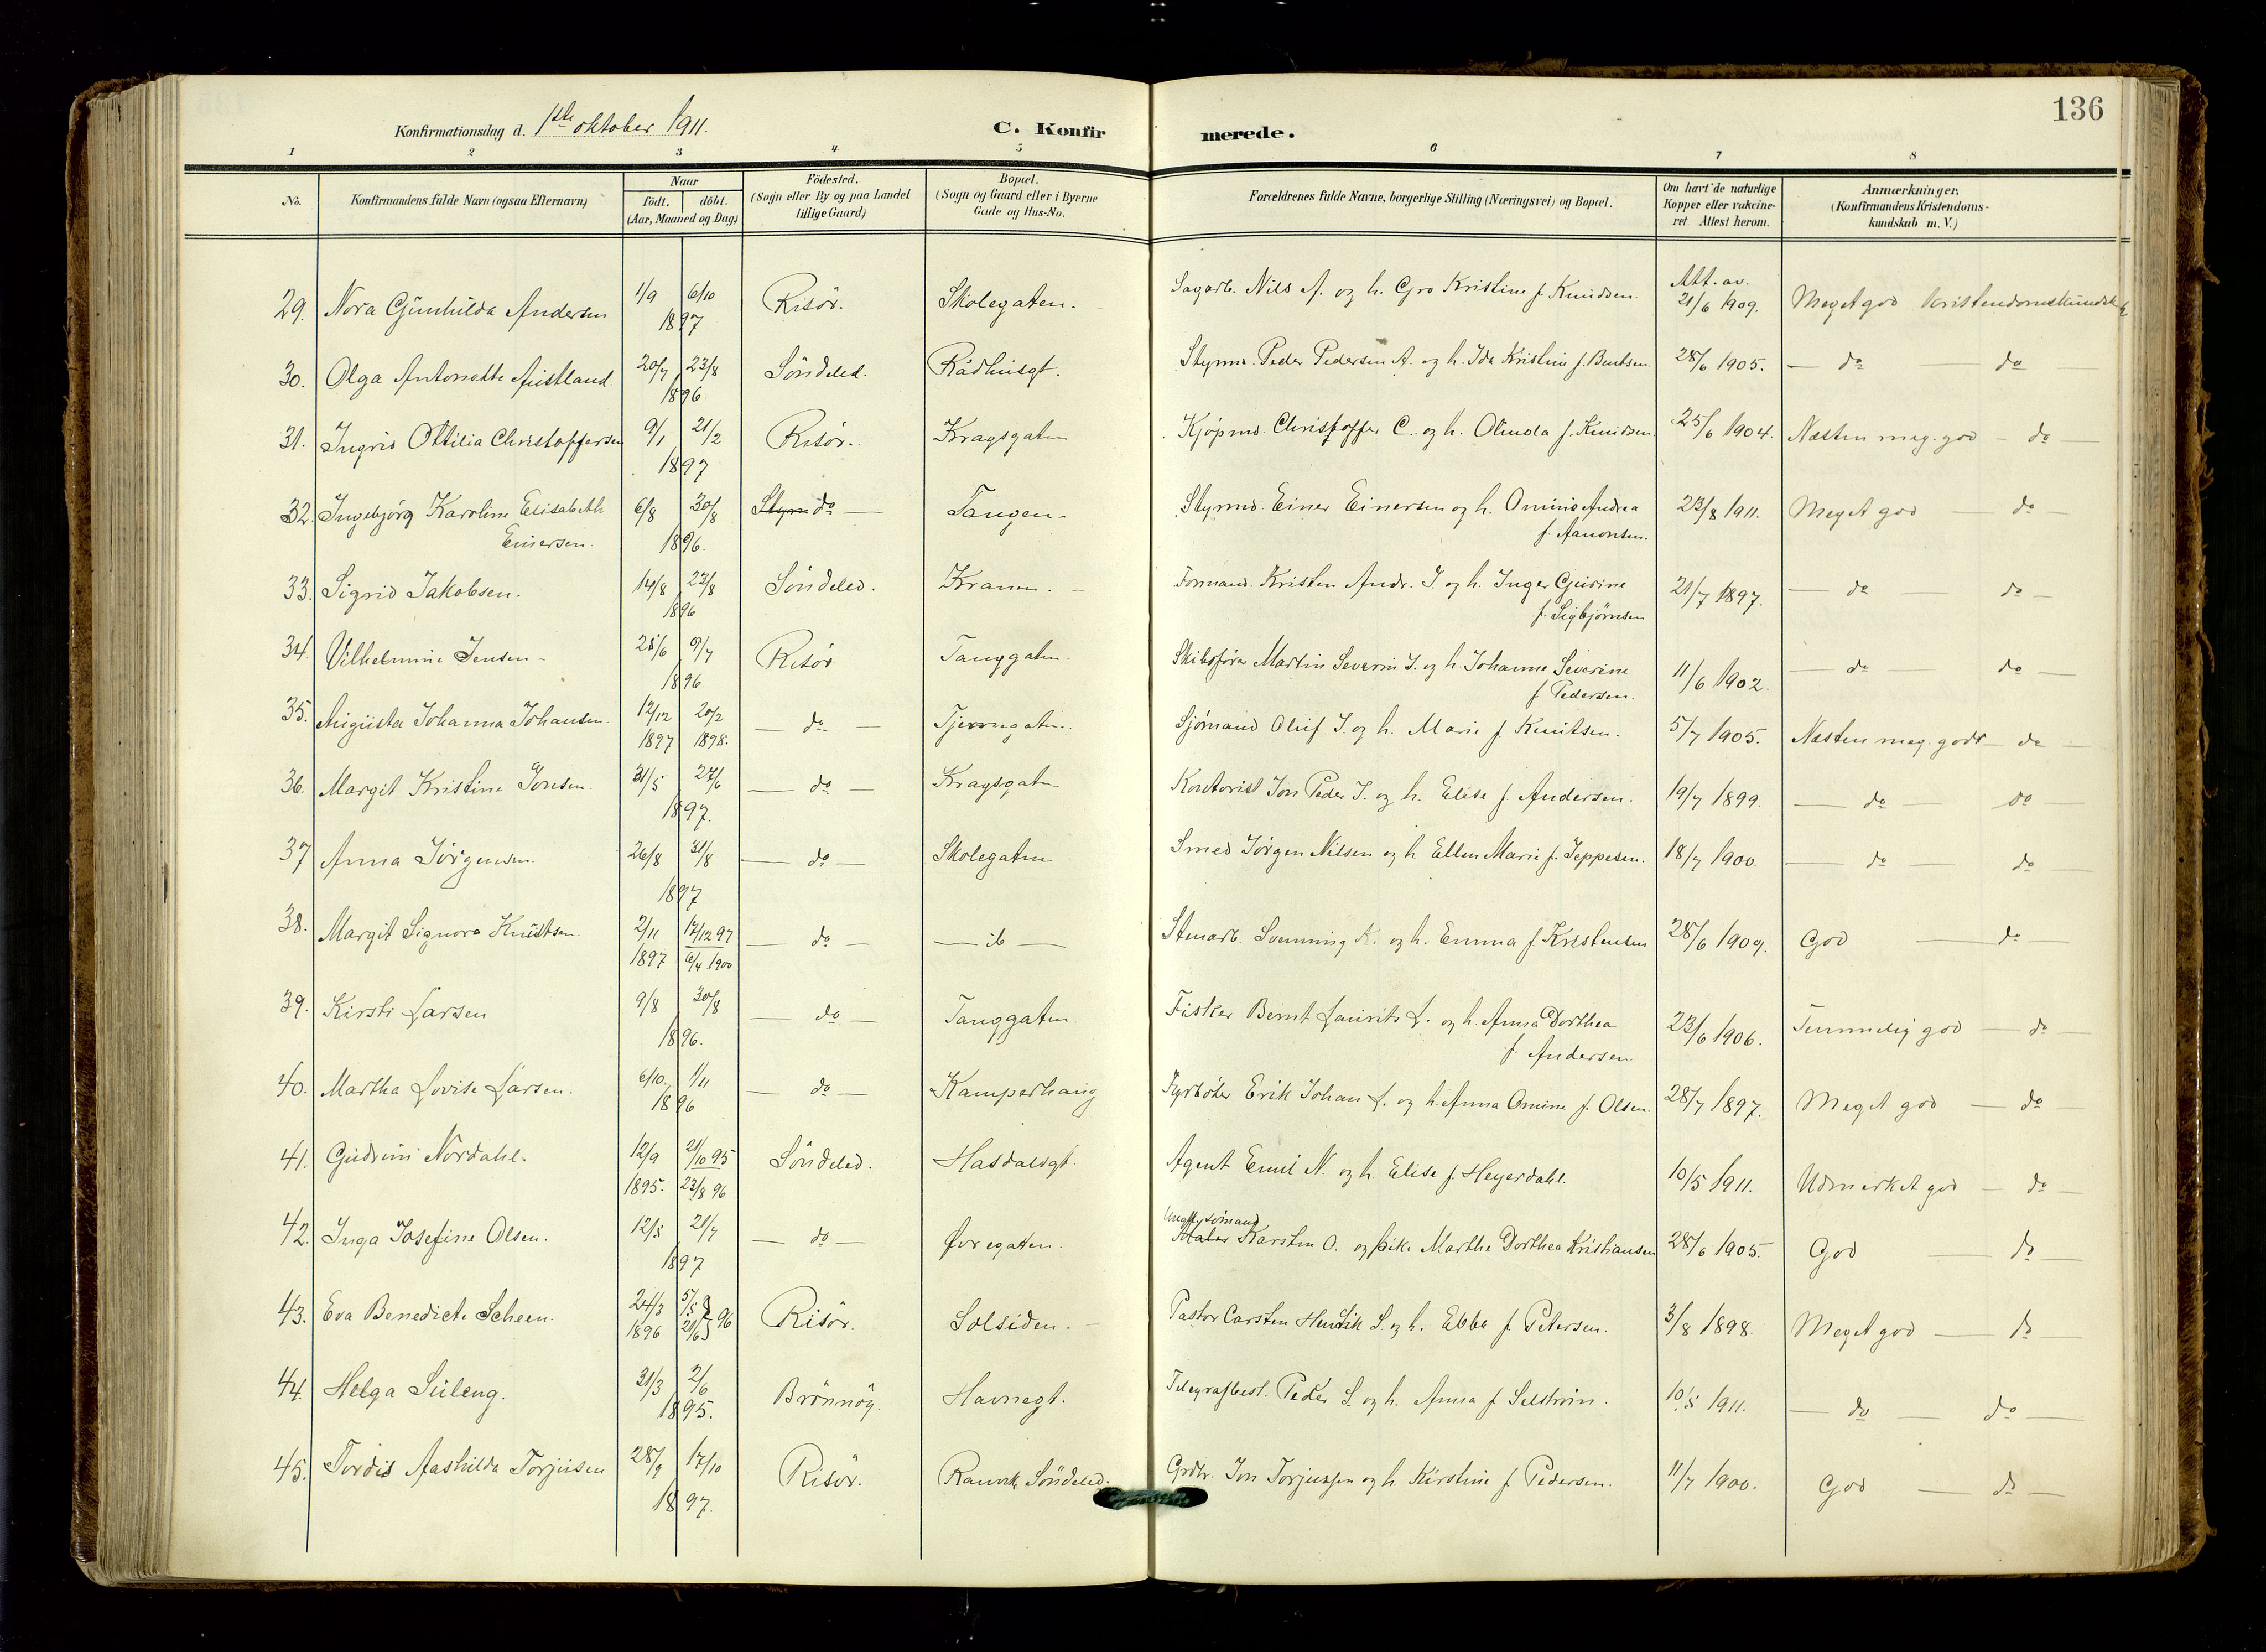 136
Konfirmationsdag d. 1ste oktober 1911.
C. Konfirmerede.
1 2 3 4 5 6 7 8
No.
Konfirmandens fulde Navn (ogsaa Efternavn)
Naar
födt. döbt.
(Aar, Maaned og Dag)
Födested.
(Sogn eller By og paa Landet
tillige Gaard)
Bopæl.
(Sogn og Gaard eller i Byerne
Gade og Hus-No.
Forældrenes fulde Navne, borgerlige Stilling (Næringsvei) og Bopæl.
Om havt de naturlige
Kopper eller vakcine-
ret Attest herom.
Anmærkninger,
(Konfirmandens Kristendoms-
kundskab m. V.)
29. Nora Gunhilda Andersen 1/9 6/10 1897 Risör. Skolegaten. Sagarb. Nils A. og h. Gro Kristine f. Knudsen. Att. av. 21/6 1909. Meget god kristendomskundskab
30. Olga Antonette Austland. 20/7 23/8 1896. Söndeled. Rådhusgt. Styrmd. Peder Pedersen A. og h. Ida Kristine f. Bentsen. 28/6 1905. — do — do —
31. Ingrid Ottilia Christoffersen 9/1 21/2 1897 Risör. Kragsgaten Kjöpmd. Christoffer C. og h. Olinda f. Knudsen. 25/6 1904. Næsten meg. god — do —
32. Ingebjörg Karoline Elisabeth 6/8 30/8 1896. Styrm do — Tangen. Styrmd. Einer Einersen og h. Omine Andrea 23/8 1911. Meget god — do —
Einersen. f. Aanonsen.
33. Sigrid Jakobsen. 14/8 23/8 1896 Söndeled. Kranm. Formand. Kristen Andr. J. og h. Inger Gurine 21/7 1897. — do — do —
f. Sigbjörnsen
34. Vilhelmine Jensen 25/6 9/7 1896 Risör Tanggaten. Skibsförer Martin Severin J. og h. Johanne Severine 11/6 1902. — do do —
f. Pedersen.
35. Augusta Johanna Johansen. 12/12 1897 20/2 1898. — do — Tjerngaten. Sjömand Oluf J. og h. Marie f. Knutsen. 5/7 1905. Næsten meg. godt — do —
36. Margit Kristine Jonsen. 31/5 27/6 1897. — do — Kragsgaten Kontorist Jon Peder J. og h. Elise f. Andersen. 19/7 1899. — do — do
37 Anna Jörgensen. 26/8 31/8 1897 — do — Skolegaten Smed Jörgen Nilsen og h. Ellen Marie f. Jeppesen. 18/7 1900. — do — do —
38. Margit Signora Knutsen. 2/11 1897 17/12 97 6/4 1900 — do — — ib — Stenarb. Svenning K. og h. Emma f. Kristensen 28/6 1909. God — do —
39. Kirsti Larsen 9/8 30/8 1896. — do — Tanggaten. Fisker Bernt Laurits L. og h. Anna Dorthea 23/6 1906. Temmelig god — do —
f. Andersen.
40. Martha Lovise Larsen. 6/10 1/11 1896 — do — Kamperhaug Fyrböter Erik Johan L. og h. Anna Omine f. Olsen. 28/7 1897. Meget god — do —
41. Gudrun Nordahl. 12/9 1895. 21/10 95 23/8 96 Söndeled. Hasdalsgt. Agent Emil N. og h. Elise f. Heyerdahl. 10/5 1911. Udmerket god — do —
42. Inga Josefine Olsen. 12/5 21/7 1897 — do — Övregaten. Ungk. sömand
Maler Karsten O. og pike Marthe Dorthea Kristiansen 28/6 1905. God — do —
43. Eva Benedicte Scheen. 24/3 1896 5/5 21/6 } 96 Risör. Solsiden. — Pastor Carsten Henrik S. og h. Ebba f. Petersen. 3/8 1898. Meget god — do —
44. Helga Suleng. 31/3 2/6 1895. Brönnöy. Havnegt. Telegrafbest. Peder S. og h. Anna f. Selström. 10/5 1911. — do — do —
45. Tordis Aashilda Torjusen 28/9 17/10 1897. Risör. Ranvik Söndeled. Grdbr. Jon Torjussen og h. Kirstine f. Pedersen. 11/7 1900. God — do —